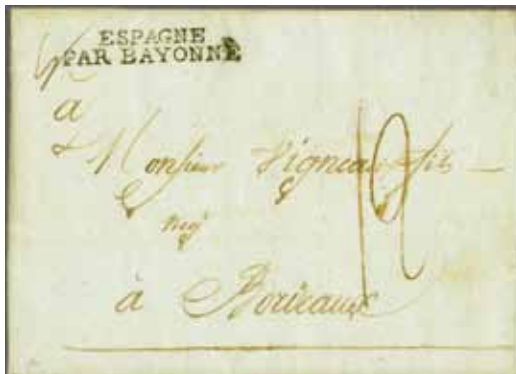 ESPAGNE
PAR BAYONNE
a
Monsieur Vigneau fils
neg
à Bordeaux